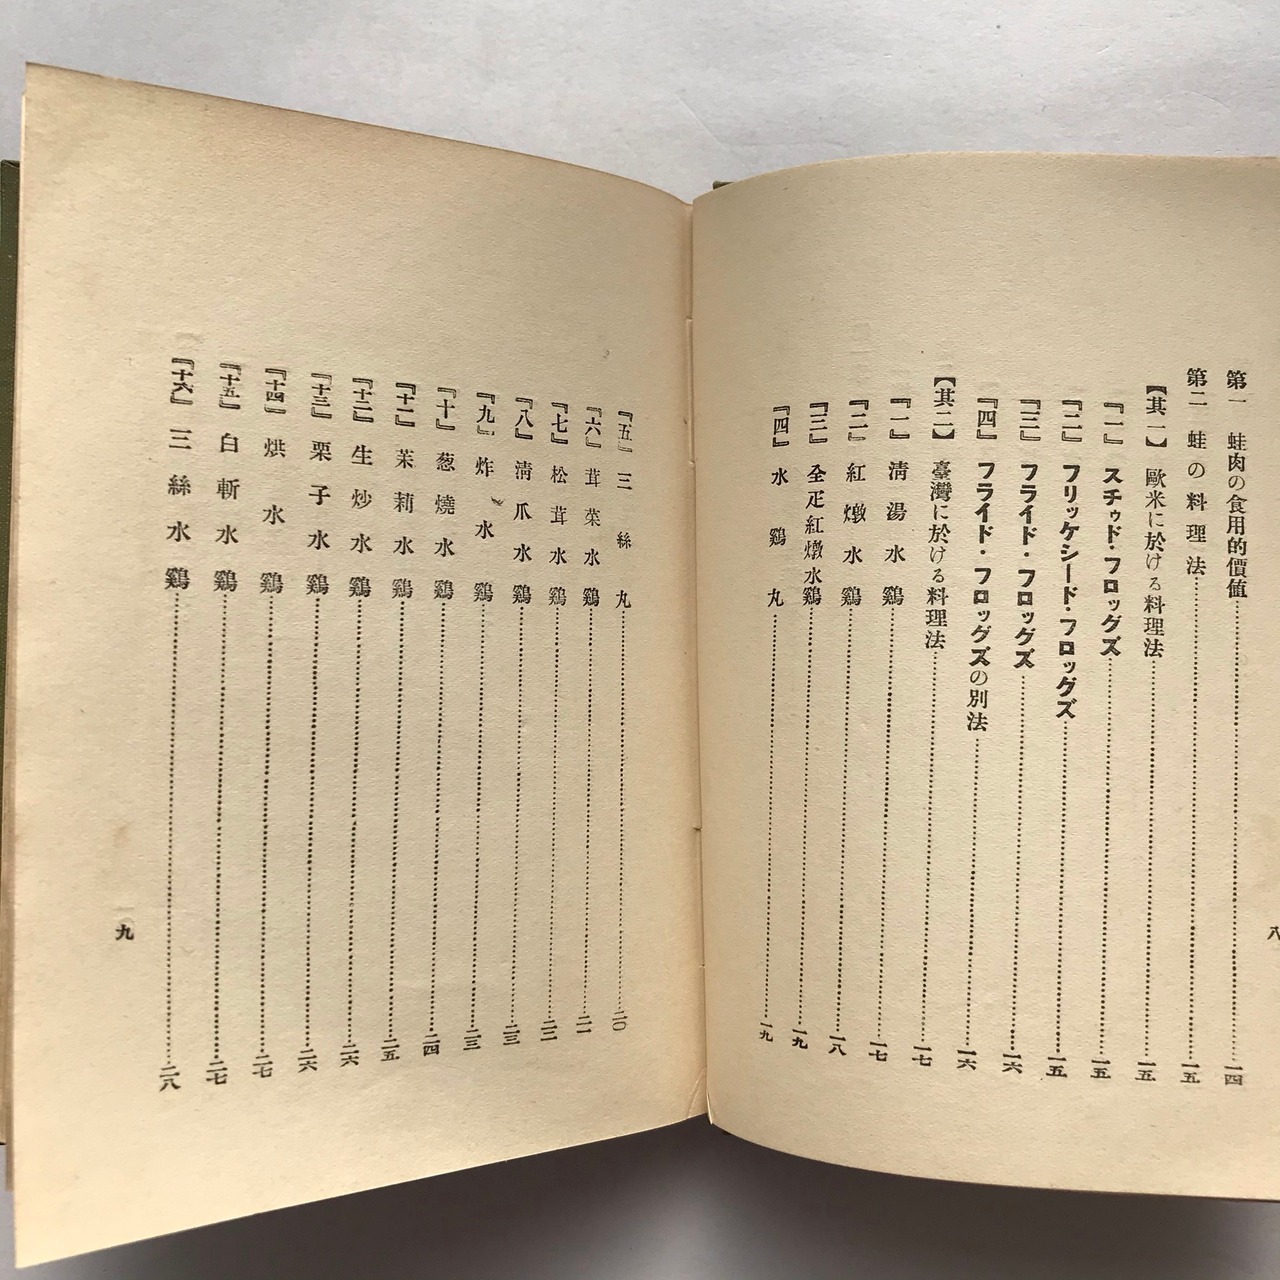 第一 蛙肉の食用的價値……一四
第二 蛙の料理法……一五
【其一】 歐米に於ける料理法……一五
『一』 スチゥド・フロッグズ……一五
『二』 フリッケシード・フロッグズ……一五
『三』 フライド・フロッグズ……一六
『四』 フライド・フロッグズの別法……一六
【其二】 臺灣に於ける料理法……一七
『一』 淸湯水鷄……一七
『二』 紅燉水鷄……一八
『三』 全疋紅燉水鷄……一九
『四』 水鷄丸……一九
八
『五』 三絲丸……二〇
『六』 茸菜水鷄……二一
『七』 松茸水鷄……二二
『八』 淸爪水鷄……二三
『九』 炸水鷄……二三
『十』 葱燒水鷄……二四
『十一』 茉莉水鷄……二五
『十二』 生炒水鷄……二六
『十三』 栗子水鷄……二六
『十四』 烘水鷄……二七
『十五』 白斬水鷄……二七
『十六』 三絲水鷄……二八
九